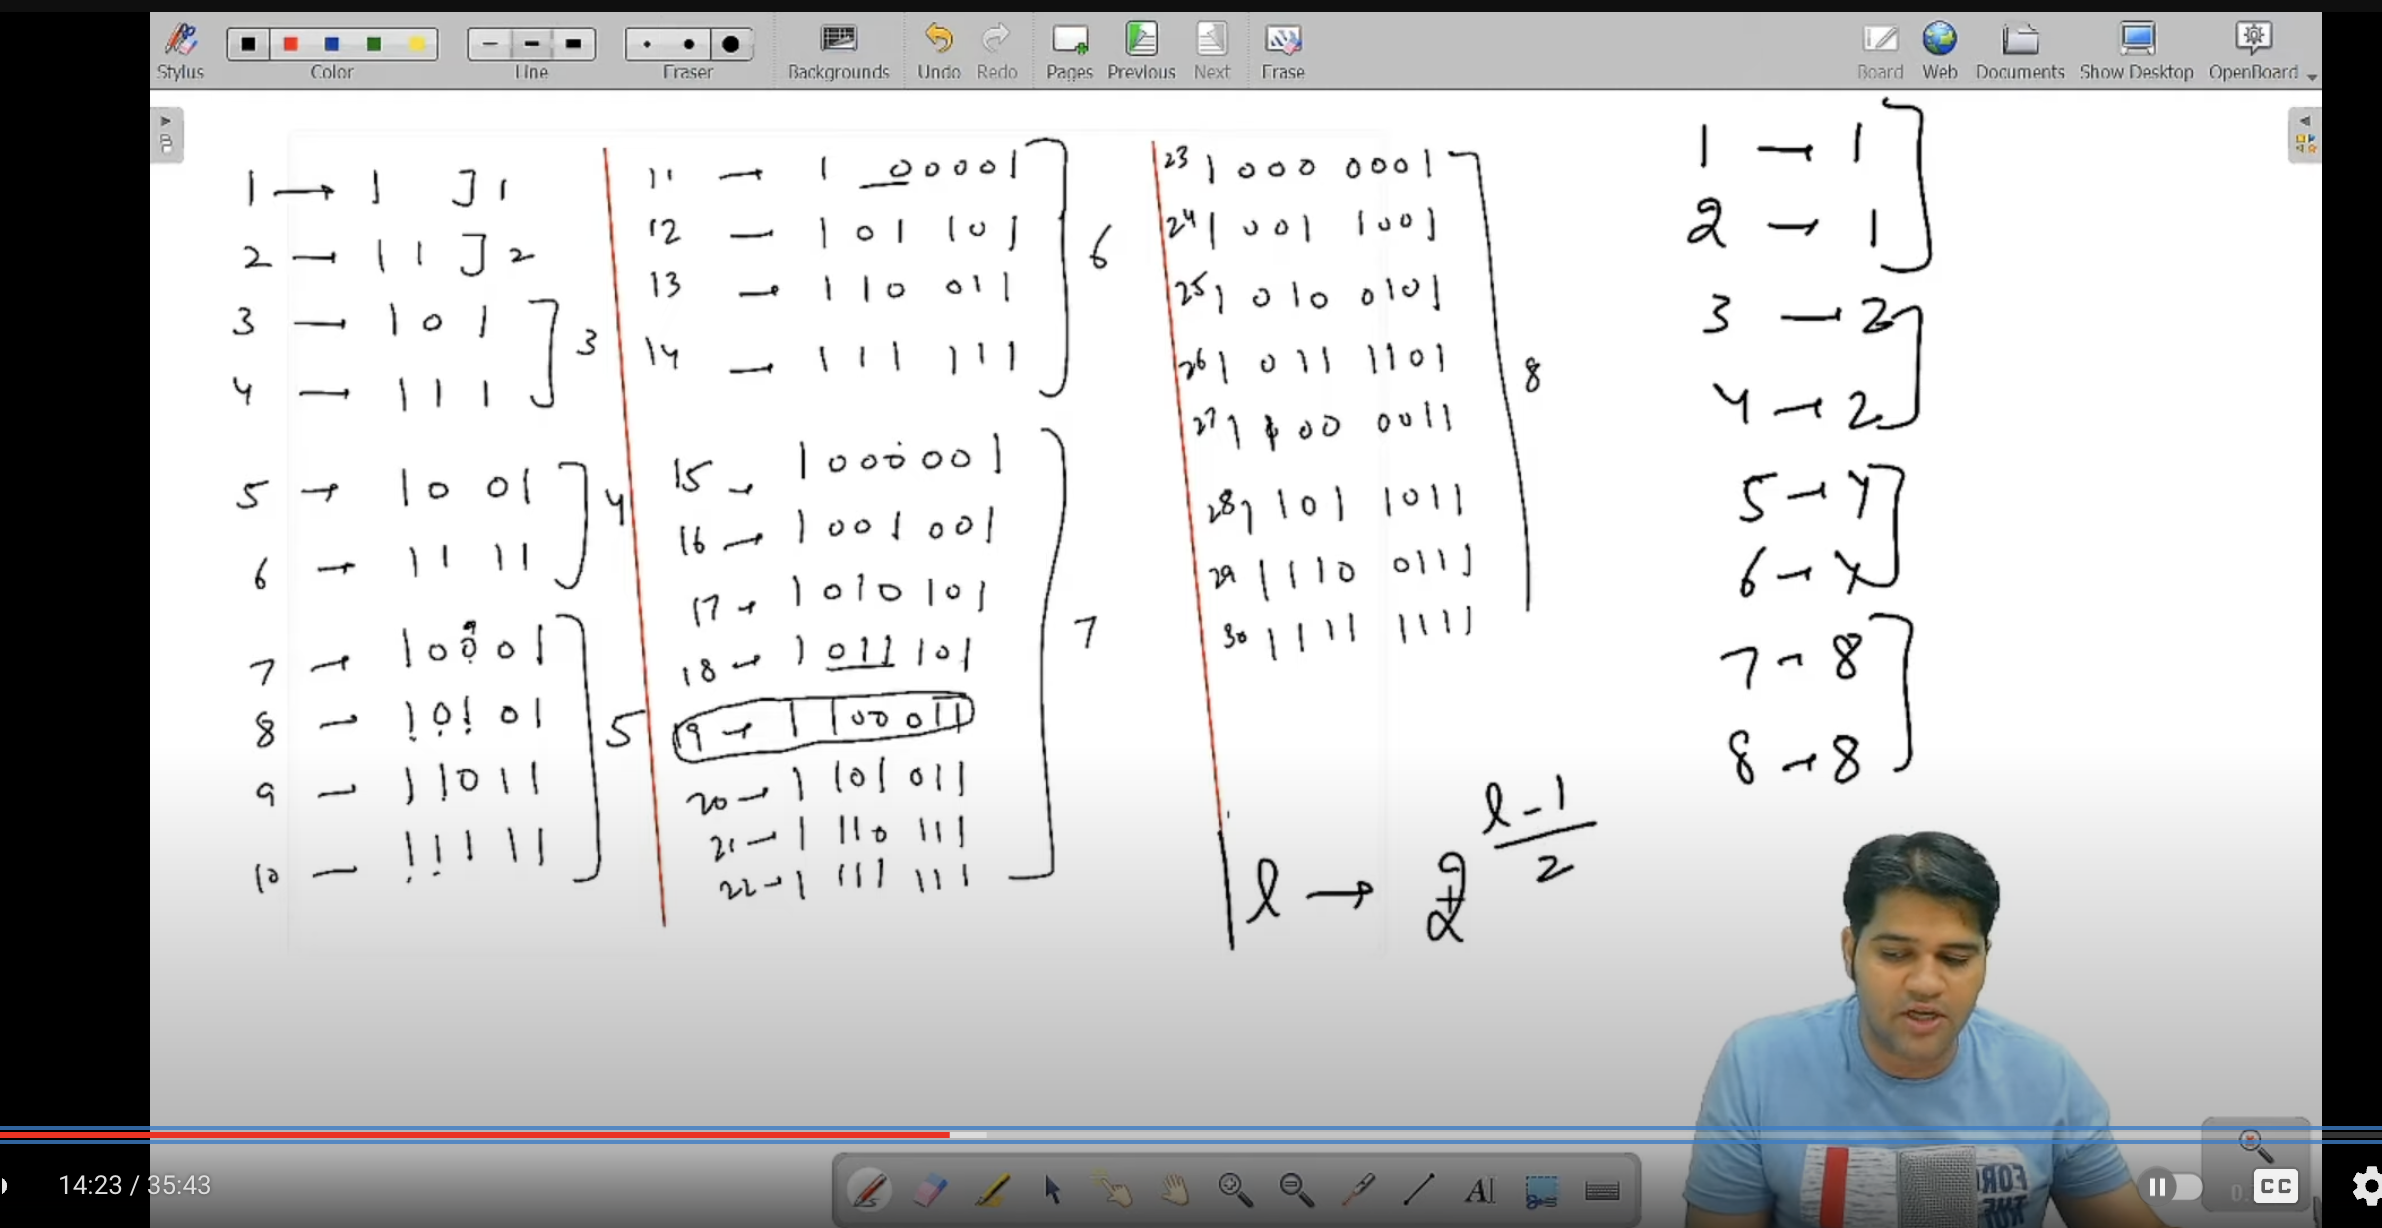 Stylus
Color
Line
Eraser
Backgrounds
Undo
Redo
Pages
Previous
Next
Erase
Board
Web
Documents
Show Desktop
OpenBoard
1 → 1 ] 1
2 — 1 1 ] 2
3 — 1 0 1
4 — 1 1 1
3
5 → 1 0 0 1
6 → 1 1 1 1
4
7 → 1 0 0 0 1
8 — 1 0 1 0 1
9 — 1 1 0 1 1
10 — 1 1 1 1 1
5
11 → 1 0 0 0 0 1
12 — 1 0 1 1 0 1
13 → 1 1 0 0 1 1
14 — 1 1 1 1 1 1
6
15 → 1 0 0 0 0 0 1
16 → 1 0 0 1 0 0 1
17 → 1 0 1 0 1 0 1
18 → 1 0 1 1 1 0 1
19 → 1 1 0 0 0 1 1
20 → 1 1 0 1 0 1 1
21 → 1 1 1 0 1 1 1
22 → 1 1 1 1 1 1 1
7
23 1 0 0 0 0 0 0 1
24 1 0 0 1 1 0 0 1
25 1 0 1 0 0 1 0 1
26 1 0 1 1 1 1 0 1
27 1 1 0 0 0 0 1 1
28 1 1 0 1 1 0 1 1
29 1 1 1 0 0 1 1 1
30 1 1 1 1 1 1 1 1
8
1 → 1
2 → 1
3 → 2
4 → 2
5 → 4
6 → 4
7 → 8
8 → 8
l → 2
l - 1
2
FOR
THE
14:23 / 35:43
CC